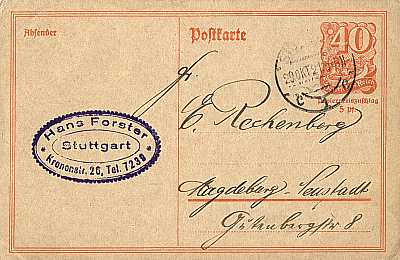 Absender
Postkarte
40
Hans Forster
Stuttgart
Kronenstr. 20, Tel. 7239
Fr.
E. Rechenberg
Magdeburg-Neustadt
Gutenbergstr 8
5 Pf.